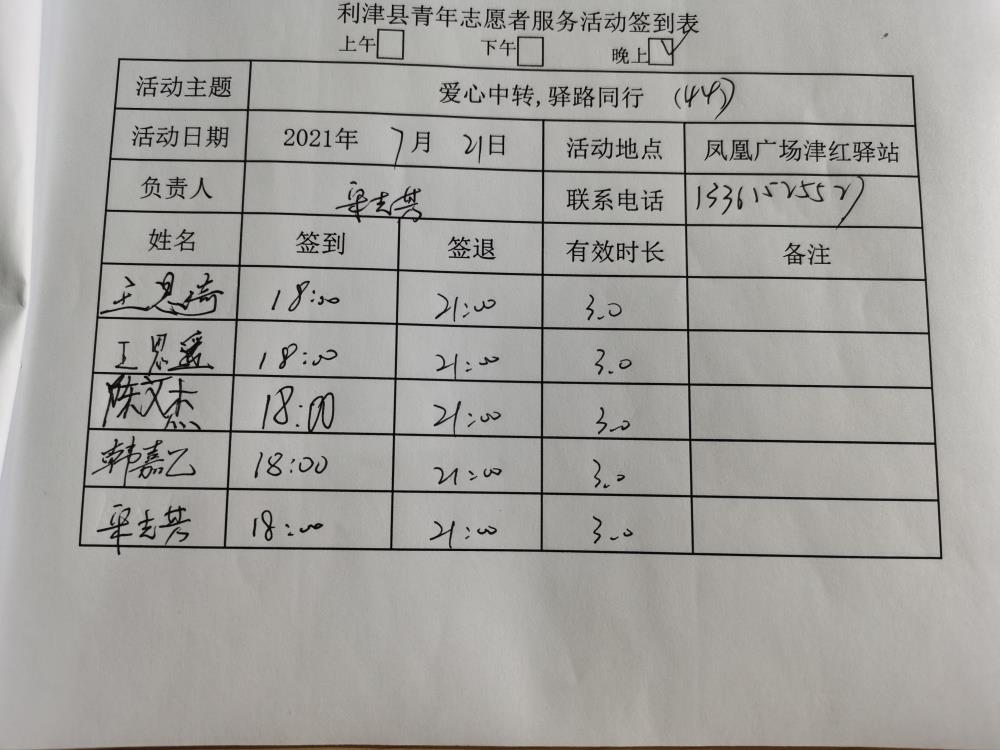 利津县青年志愿者服务活动签到表
上午 下午 晚上
活动主题 爱心中转,驿路同行 (44)
活动日期 2021年 7月 21日 活动地点 凤凰广场津红驿站
负责人 联系电话 13361525527
姓名 签到 签退 有效时长 备注
王思琦 18:00 21:00 3.0
王思 18:00 21:00 3.0
陈文杰 18:00 21:00 3.0
韩嘉乙 18:00 21:00 3.0
18:00 21:00 3.0